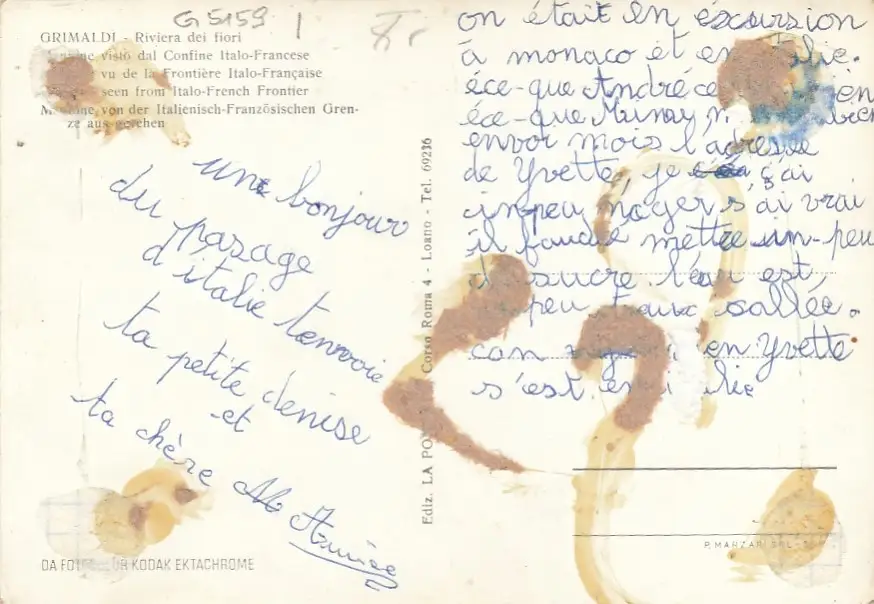 G 5159
GRIMALDI - Riviera dei fiori
visto dal Confine Italo-Francese
vu de la Frontière Italo-Française
seen from Italo-French Frontier
von der Italienisch-Französischen Gren-
ze aus gesehen
une bonjour
du pasage
d'italie tenvoie
ta petite denise
et
ta chère
DA FOTOCOLOR KODAK EKTACHROME
Ediz. LA Corso Roma 4 - Loano - Tel. 69216
on était en éxcursion
à monaco et en italie.
éce-que André
éce-que
envoi mois l'adresse
de Yvette, je s'ai
impeu nager s'ai vrai
il faudré mettre un-peu
de sucre l'eau est
peu traux sallée.
can en Yvette
s'est
P. MARZARI